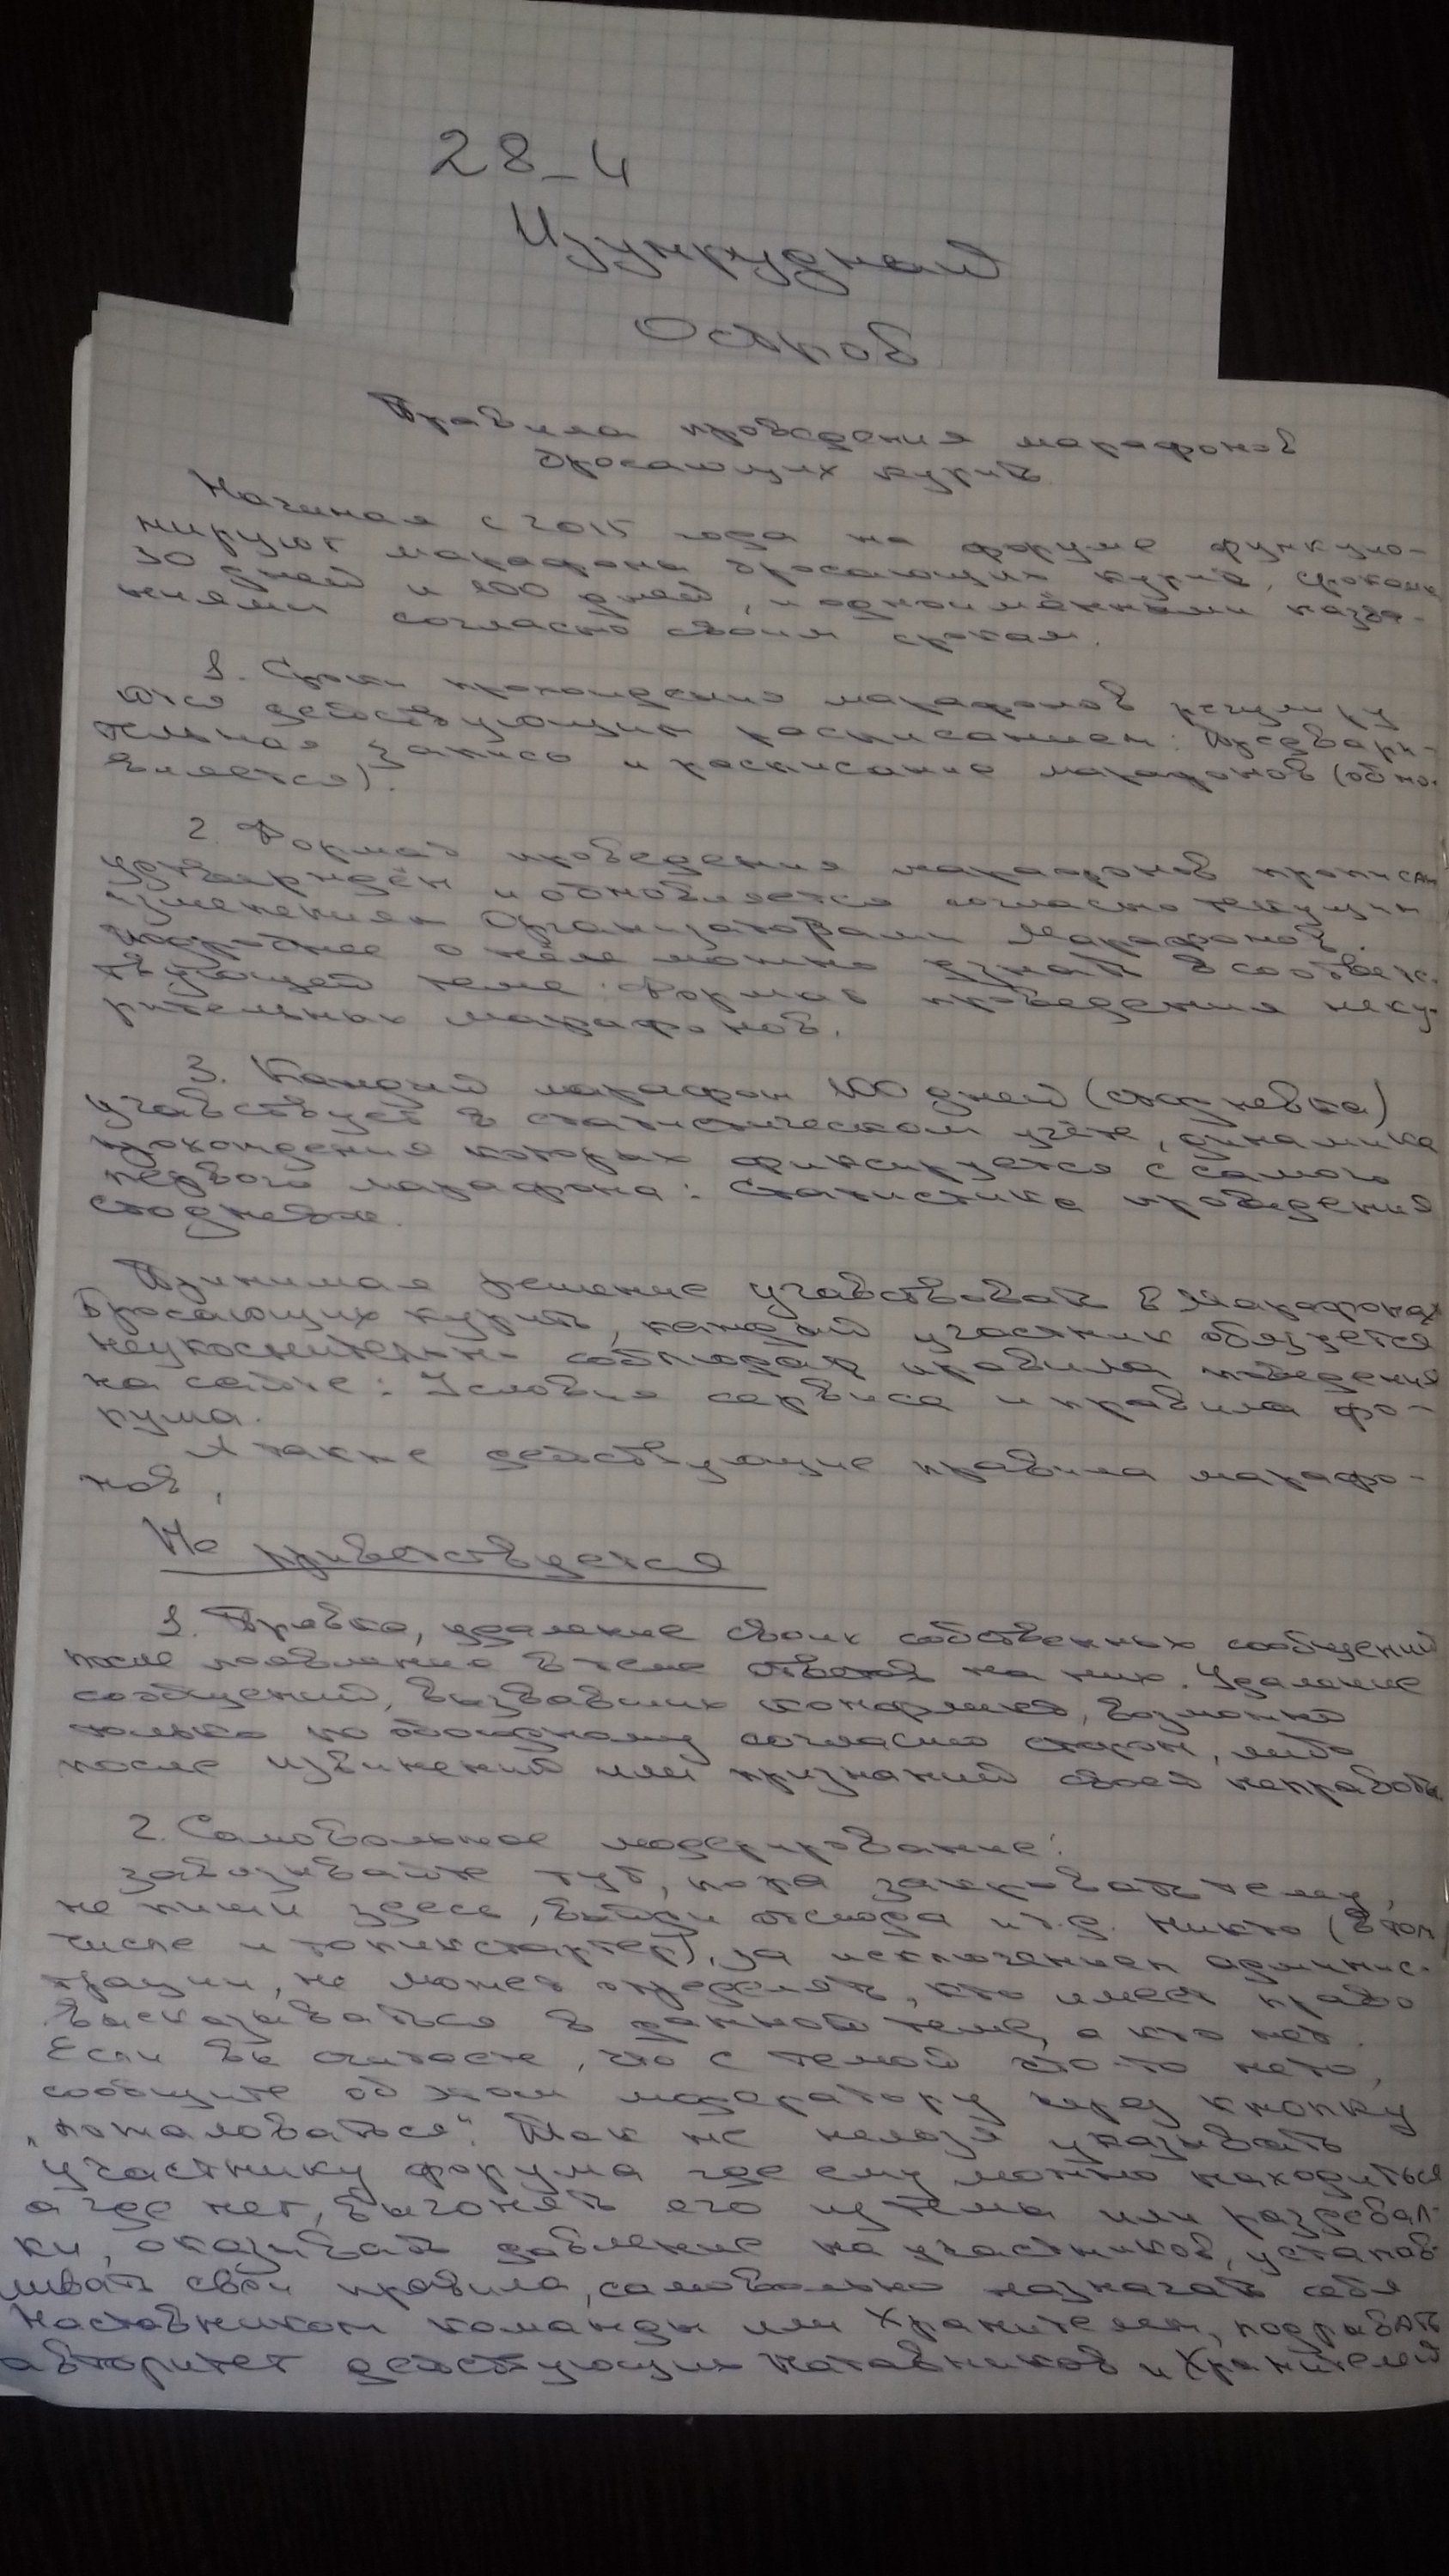 28_4
Изумрудный
Остров
Правила проведения марафонов
бросающих курить
Начиная с 2015 года на форуме функцио-
нируют марафоны бросающих курить, сроком
30 дней и 100 дней, и одноимёнными назва-
ниями согласно своим срокам.
1. Сроки прохождения марафонов регулиру
ются действующим расписанием: Предвари-
тельная запись и расписание марафонов (обно-
вляется).
2. Формат проведения марафонов прописан
утверждён и обновляется согласно текущим
изменениям Организаторами Марафонов.
Подробнее о нём можно узнать в соответс-
твующей теме: Формат проведения неку-
рительных марафонов.
3. Каждый марафон 100 дней (стодневка)
учавствует в статистическом учёте, динамика
прохождения которых фиксируется с самого
первого марафона: Статистика проведения
стодневок.
Принимая решение учавствовать в Марафонах
Бросающих курить, каждый участник обязуется
неукоснительно соблюдать правила поведения
на сайте: Условия сервиса и правила фо-
рума.
А также действующие правила марафо-
нов,
Не приветствуется
1. Правка, удаление своих собственных сообщений
после появления в теме ответов на них. Удаление
сообщений, вызвавших конфликт, возможно
только по обоюдному согласию сторон, либо
после извинений или признаний своей неправоты.
2. Самовольное модерирование:
завязывайте тут, пора закрывать тему,
не пиши здесь, выйди отсюда и т.д. Никто (в том
числе и топикстартер), за исключением админис-
трации, не может определять, кто имеет право
высказываться в данной теме, а кто нет.
Если вы считаете, что с темой что-то не то,
сообщите об этом модератору через кнопку
„пожаловаться". Так же нельзя указывать
участнику форума где ему можно находиться
а где нет, выгонять его из темы или раздевал-
ки, оказывать давление на участников, устанав-
ливать свои правила, самовольно назначать себя
Наставником команды или Хранителем, подрывать
авторитет действующих Наставников и Хранителей